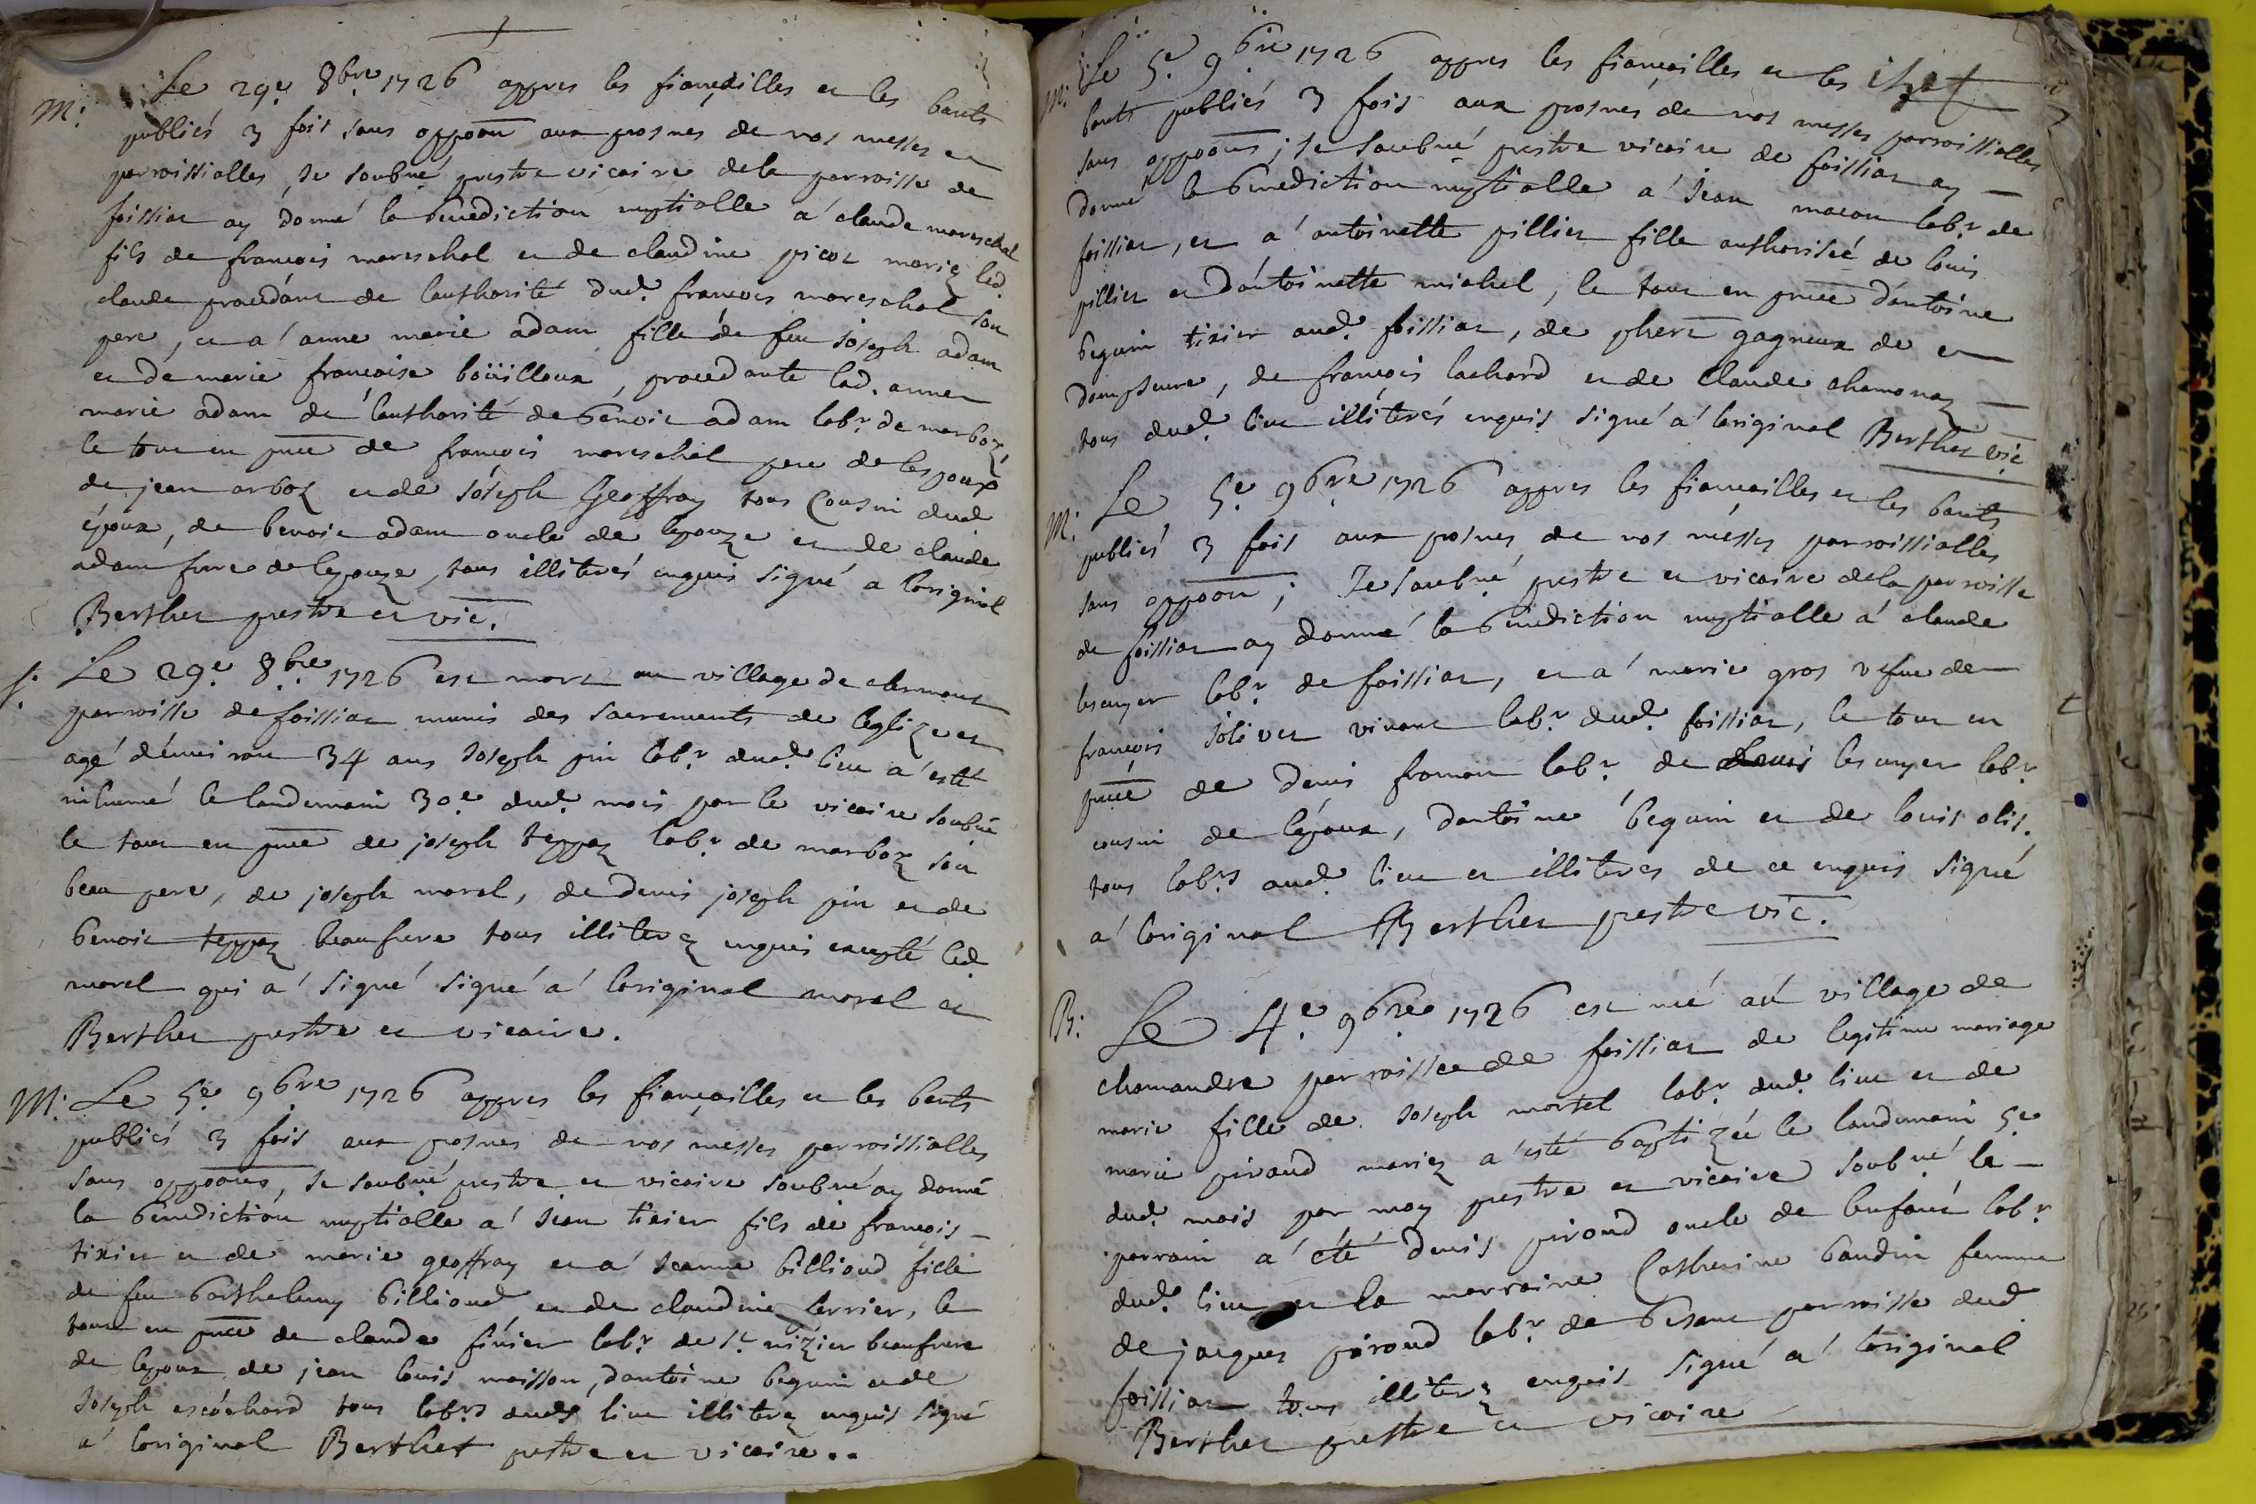 M: Le 29e 8bre 1726 appres les fiançailles et les bants
publiés 3 fois sans oppoõn aux prosnes de nos messes et
parroissialles, Je soubné prestre vicaire de la parroisse de
foissiat ay donné la benediction nuptialle a claude mareschal
fils de francois mareschal et de claudine picot mariez led.
claude procedant de lauthorité dud. francois mareschal son
pere, et a anne marie adam fille de feu Joseph adam
et de marie francoise boüilloux, procedante lad. anne
marie adam de lauthorité de benoit adam labr. de marboz,
le tout en pñce de francois mareschal pere de lespoux
de jean arboz et de Joseph Geoffray tous Cousin dud
époux, de benoit adam oncle de lepouze et de claude
adam frere de lepouze, tous illiterés enquis signé a loriginal
Berthet prestre et vic.
s. Le 29e 8bre 1726 est mort au village de clermont
parroisse de foissiat munis des sacrements de leglize et
agé denviron 34 ans Joseph pin labr. dud. lieu a esté
inhumé le landemain 30e dud. mois par le vicaire soubné
le tout en pñce de joseph teppaz labr. de marboz son
beau pere, de joseph morel, de denis joseph pin et de
benoit teppaz beaufrere tous illiterez enquis excepté led
morel qui a signé signé a loriginal morel et
Berthet prestre et vicaire.
M: Le 5e 9bre 1726 appres les fiançailles et les bants
publiés 3 fois aux prosnes de nos messes parroissialles
sans oppoõns, Je soubné prestre et vicaire soubné ay donné
la benediction nuptialle a Jean tixier fils de francois
tixier et de marie geoffray et a Jeanne billioud fille
de feu barthelemy billioud et de claudine terrier, le
tout en pñce de claude finier labr. de st nizier beaufrere
de lepoux de jean louis maisson, dantoine beguin et de
Joseph escochard tous labrs dud. lieu illiterez enquis signé
a loriginal Berthet prestre et vicaire..
M: Le 5e 9bre 1726 appres les fiançailles et les
bants publiés 3 fois aux prosnes de nos messes parroissialles
sans oppoõns; Je soubné prestre vicaire de foissiat ay
donné la benediction nuptialle a Jean macon labr. de
foissiat, et a antoinette pillier fille authorisée de louis
pillier et dantoinette michel, le tout en pñce dantoine
beguin tixier aud. foissiat, de phert gagneux de
dompsure, de francois lachard et de Claude chamonaz
tous dud. lieu illiterés enquis signé a loriginal Berthet vic
M: Le 5e 9bre 1726 appres les fiançailles et les bants
publiés 3 fois aux prosnes de nos messes parroissialles
sans oppoõn; Je soubné prestre et vicaire de la parroisse
de foissiat ay donné la benediction nuptialle a claude
lesuyer labr. de foissiat, et a marie gros vefue de
francois Joliver vivant labr. dud. foissiat, le tout en
pñce de denis froman labr. de lesuyer labr.
cousin de lépoux, dantoine beguin et de louis olis.
tous labrs aud. lieu et illiteres de ce enquis signé
a loriginal Berthet prestre vic.
B: Le 4e 9bre 1726 est né au village de
chamandre parroisse de foissiat de legitime mariage
marie fille de Joseph mortel labr. dud. lieu et de
marie piroud mariez a esté baptizée le landemain 5e
dud. mois par moy prestre et vicaire soubné le
parrain a été denis piroud oncle de lenfant labr.
dud. lieu et la marraine Catherine baudin femme
de jacques piroud labr. de besant parroisse dud
foissiat tous illiterz enquis signé a loriginal
Berthet prestre et vicaire